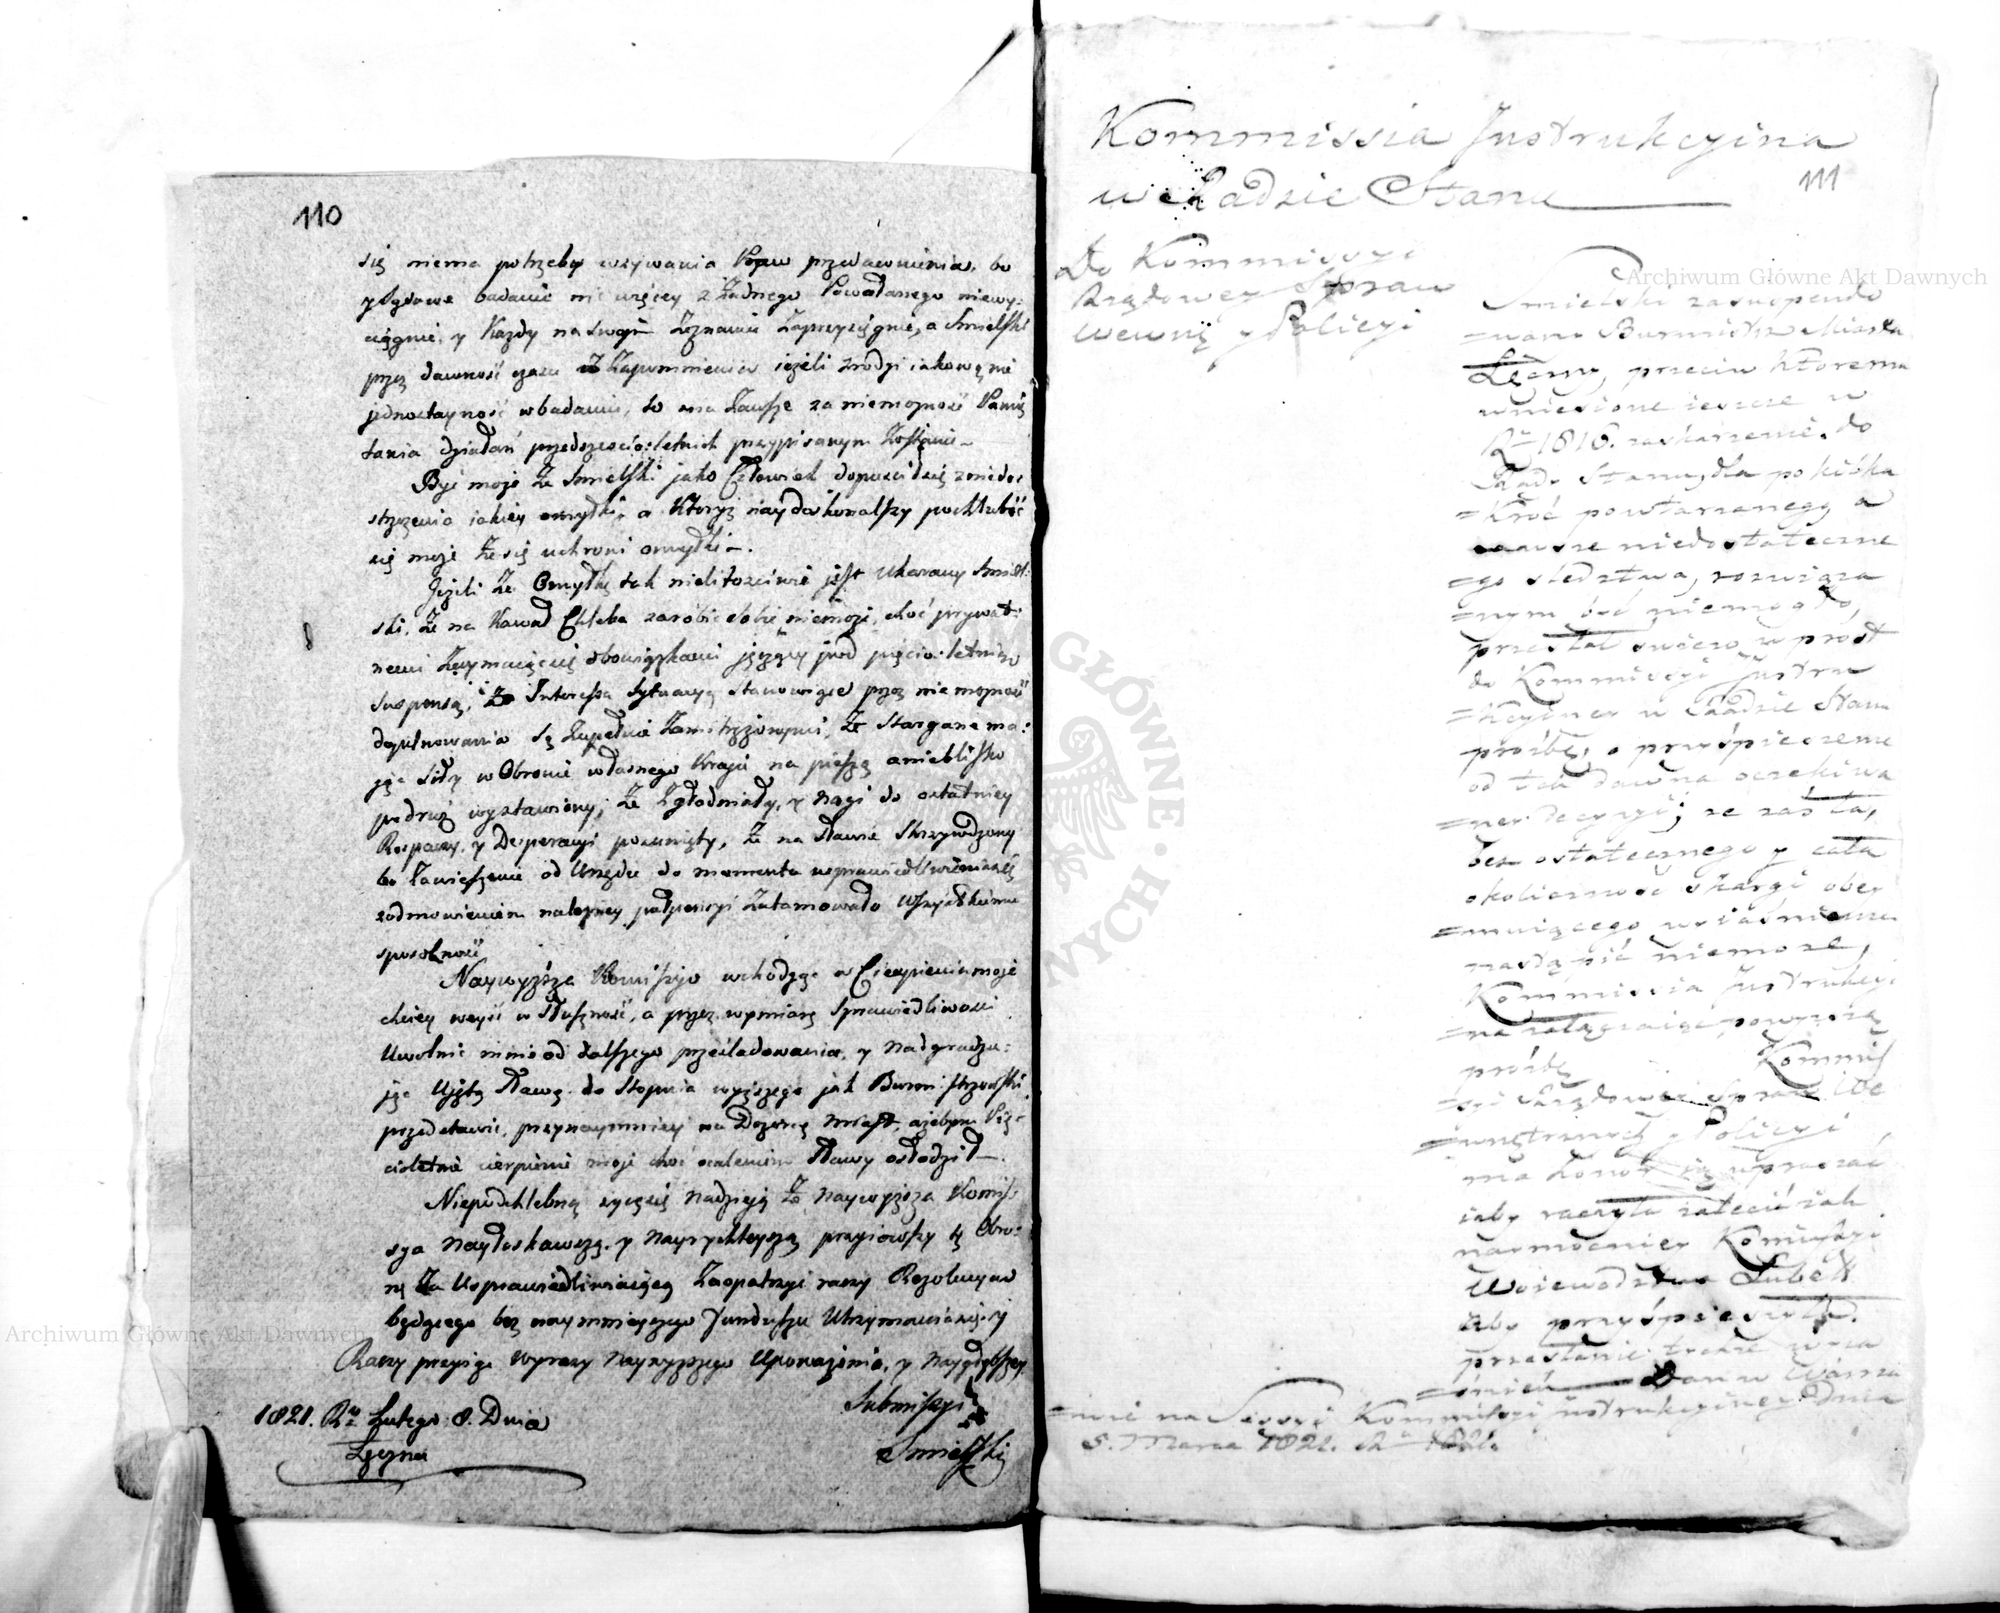 110
się niema potrzeby wzywania Praw przedawnienia, bo
y Sądowe badanie nic więcey z Żadnego Powołanego niewy-
ciągnie, y Każdy na swoje Zeznanie Zaprzysięgnie, a Smielski
przez dawność czasu w Zapomnieniu jeżeli zrodzi jakową nie
jednostayność w badaniu, to ma Zawsze za niemożność Pamię-
tania działań przedsześcio-letnich przypisanym Zostanie.
Być może że Smielski jako Człowiek dopuścił się z niedo-
strzeżenia jakiey omyłki, a Któryż naydoskonalszy pochlubić
się może że się uchroni omyłki.
Jeżeli Za Omyłkę tak nielitościwie jest Ukarany Smiel-
ski, że na Kawał Chleba zarobić sobie niemoże, choć prywat-
nemi Zaymując się obowiązkami jęczący pod pięcio-letnim
Suspensą, że Interessa Sytuacyą stanowiące przez niemożność
dopilnowania są Zupełnie Zamitrężonymi, że Stargane ma-
jąc siły w Obronie własnego Kraju na pieszą a nieblisko
podróż wystawiony, że Zgłodniały, y nagi do ostatniey
Rospaczy y Desperacyi posunięty, że na Sławie Skrzywdzony
bo Zawieszenie od Urzędu do momentu usprawiedliwienia się
z odmówieniem należney pułpensyi Zatamowało Wszystkiemu
sposobność
Naywyższa Komissyo wchodząc w Cierpienia moje
chciey weyść w Słuszność, a przez wymiarę Sprawiedliwości
Uwolnić mnie od dalszego prześladowania, y nadgradza-
jąc Ujętą Sławę do Stopnia wyższego jak Burmistrzowski
przedstawić, przynaymniey na Dozorcę Miast, ażebym Pię-
cioletnie cierpienie moje choć ocaleniem Sławy osłodził.
Niepochlebną życzę się nadzieją że Naywyższa Komis-
sya Nayłaskawszą y Nayrychleyszą przyiąwszy tę Obro-
nę Za Usprawiedliwiającą Zaopatrzyć raczy Rezolucyą
będącego bez naymnieyszego funduszu Utrzymania się
Raczy przyiąć wyrazy Naywyższego Uszanowania, y Naygłębszey
Submissyi
1821. Rū Lutego 8. Dnia
Łęczna
Smielski
111
Kommissia Instrukcyina
w Radzie Stanu
Do Kommissyi
Rządowey Spraw
Wewnę: y Policyi
Smielski zasuspendo
=wany Burmistrz Miasta
Łęczny, przeciw któremu
wniesione ieszcze w
Rū 1816. zaskarzenie do
Rady Stanu, dla po kilka
=kroć powtarzanego a
zawsze niedostateczne
=go śledztwa, rozwiąza
=nym być niemogło,
przesłał swieżo w prost
do Kommissyi Instru
=kcyiney w Radzie Stanu
prośbę, o przyśpieszenie
od tak dawna oczekiwa
=ney decyzyi; ze zaś ta,
bez ostatecznego y całą
okoliczność skargi obey
=muiącego wyiaśnienia
nastąpić niemoże,
Kommissia Instrukcyi
=na załączaiąc powyższą
prośbę Kommis
=syi Rządowey Spraw We
=wnętrznych y Policyi,
ma honor ią upraszać
iżby raczyła zalecić iak
naymocniey Komissyi
Woiewództwa Lubel:
aby przyśpieszyła
przesłanie tychże wyia
=śnień Dan w Warsza
=wie na Sessyi Kommissyi instrukcyiney Dnia
5. Marca 1821. Rū 1821.
Archiwum Główne Akt Dawnych
Archiwum Główne Akt Dawnych